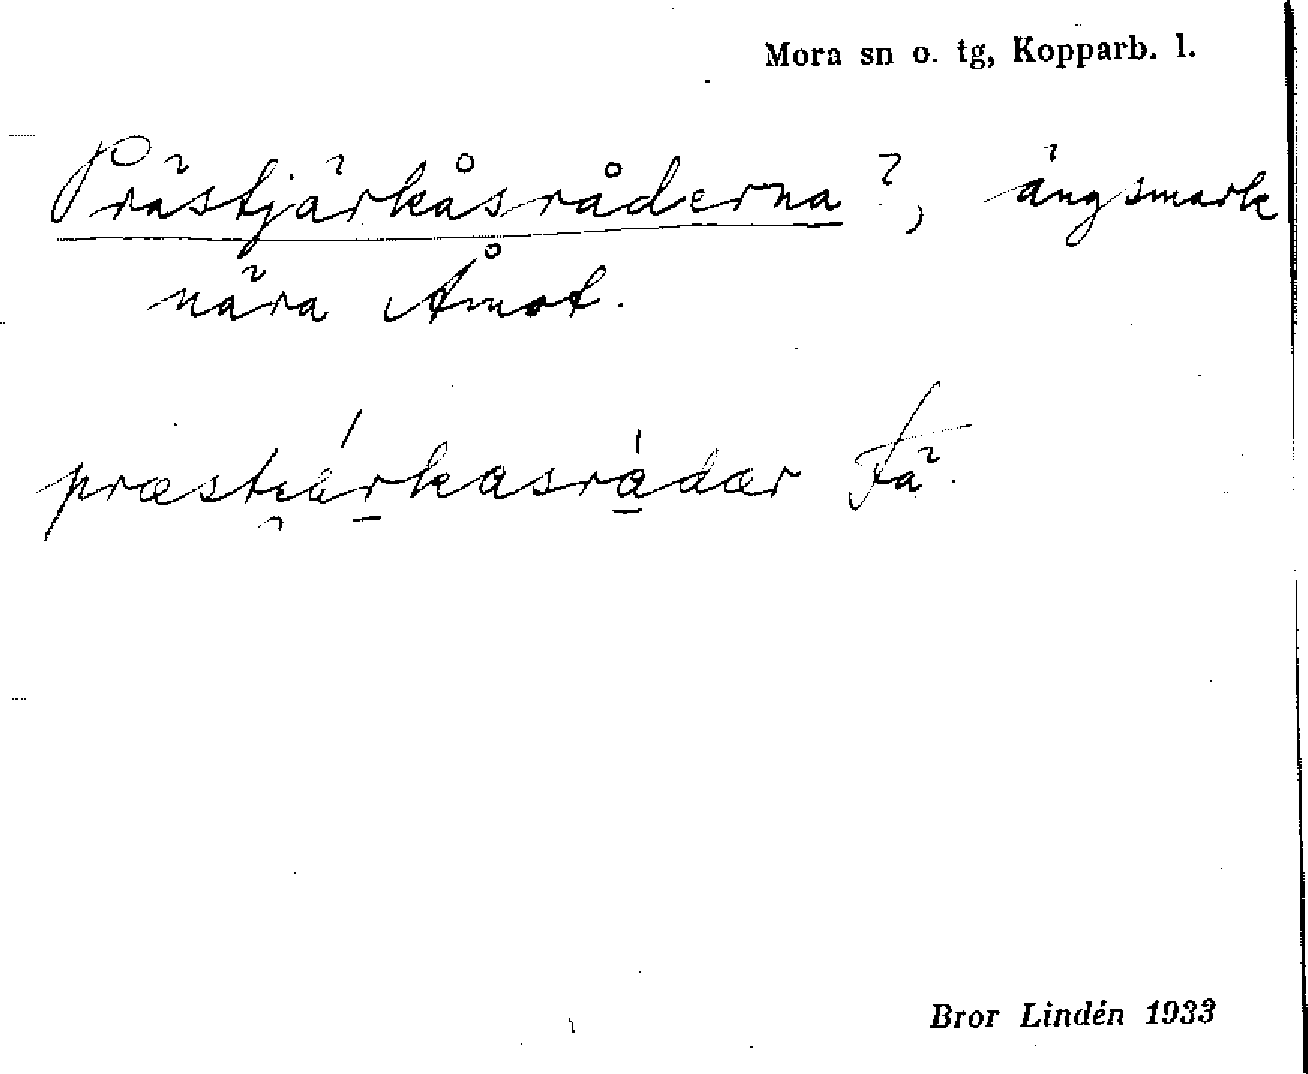 Mora sn o. tg, Kopparb. l.
Prästjärkåsråderna?, ängsmark
nära Åmot.
Fä.
Bror Lindén 1933